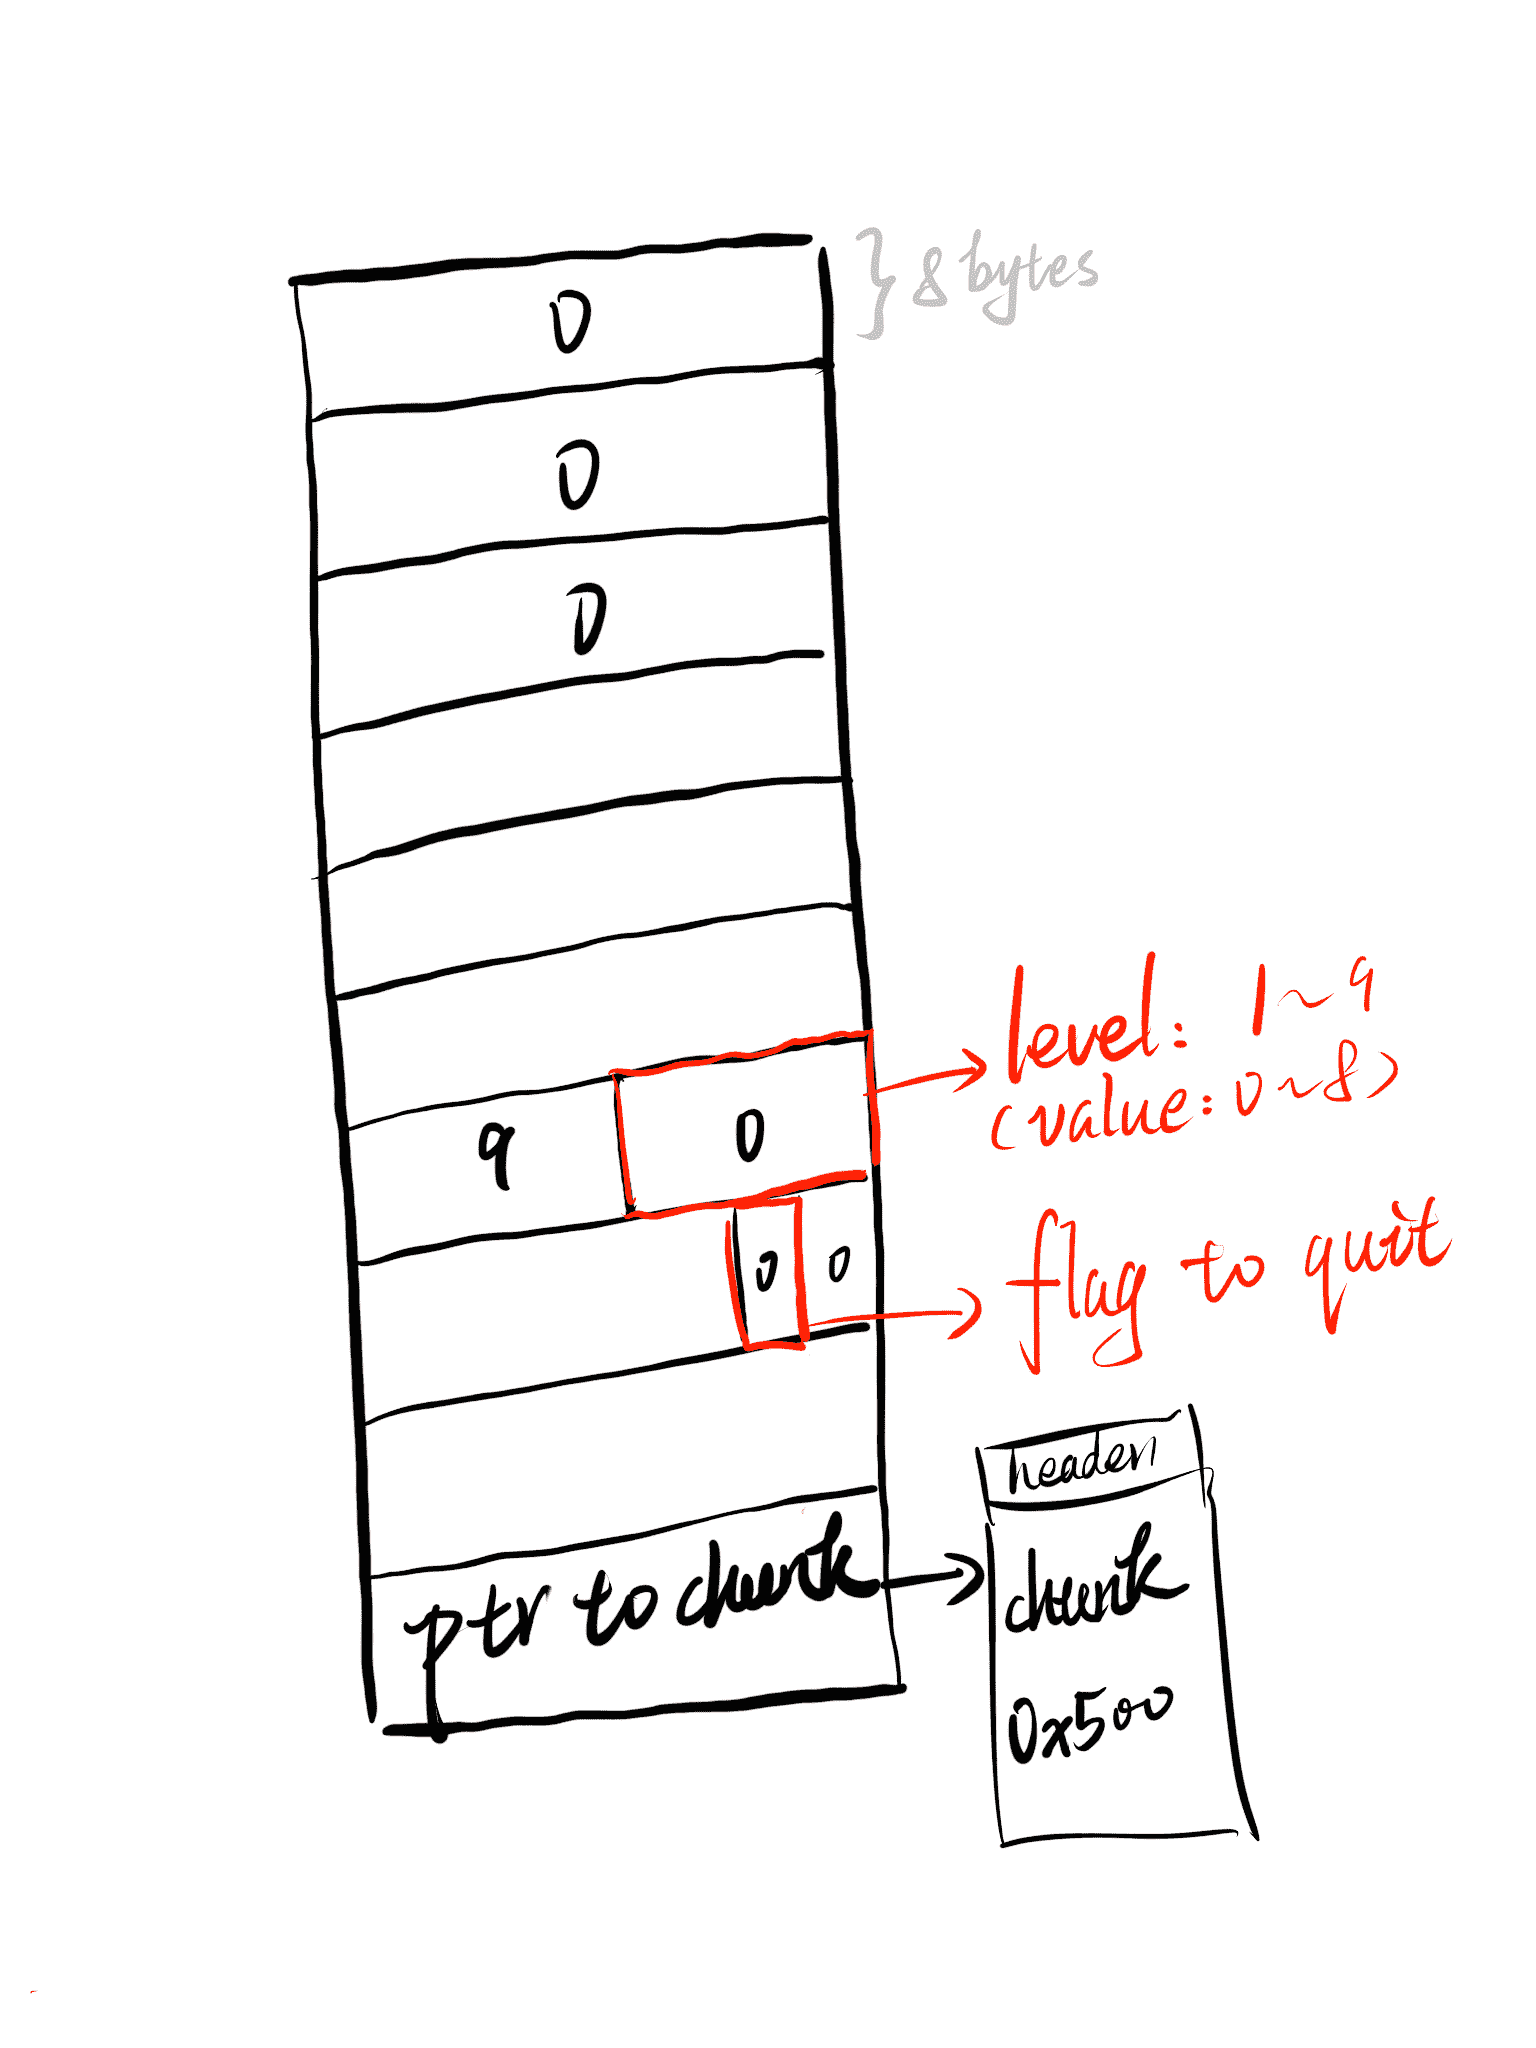 0
} 8 bytes
0
0
9
0
level: 1~9
(value: 0~8)
0
0
flag to quit
ptr to chunk
header
chunk
0x500